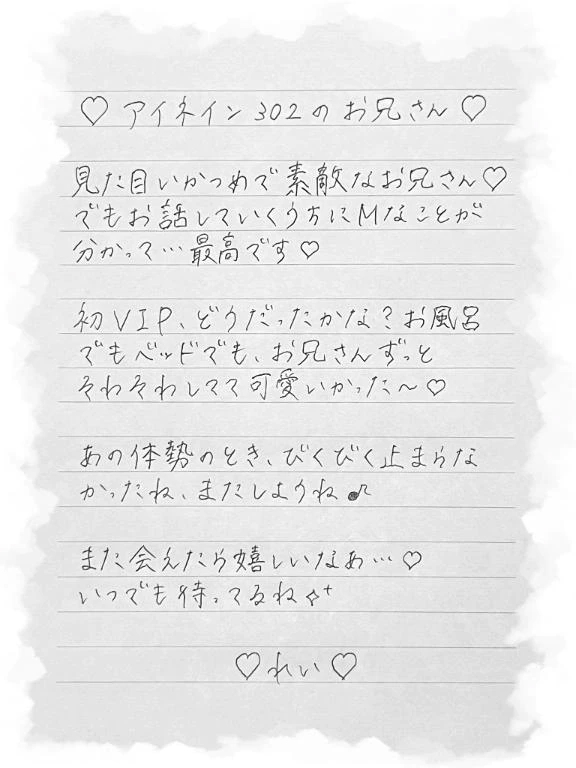 ♡ アイネイン 302 の お兄さん ♡
見た目いかつめで素敵なお兄さん♡
でもお話していくうちにMなことが
分かって…最高です♡
初VIP、どうだったかな?お風呂
でもベッドでも、お兄さんずっと
そわそわしてて可愛いかった～♡
あの体勢のとき、びくびく止まらな
かったね、またしようね♪
また会えたら嬉しいなあ…♡
いつでも待ってるね✧⁺
♡れい♡